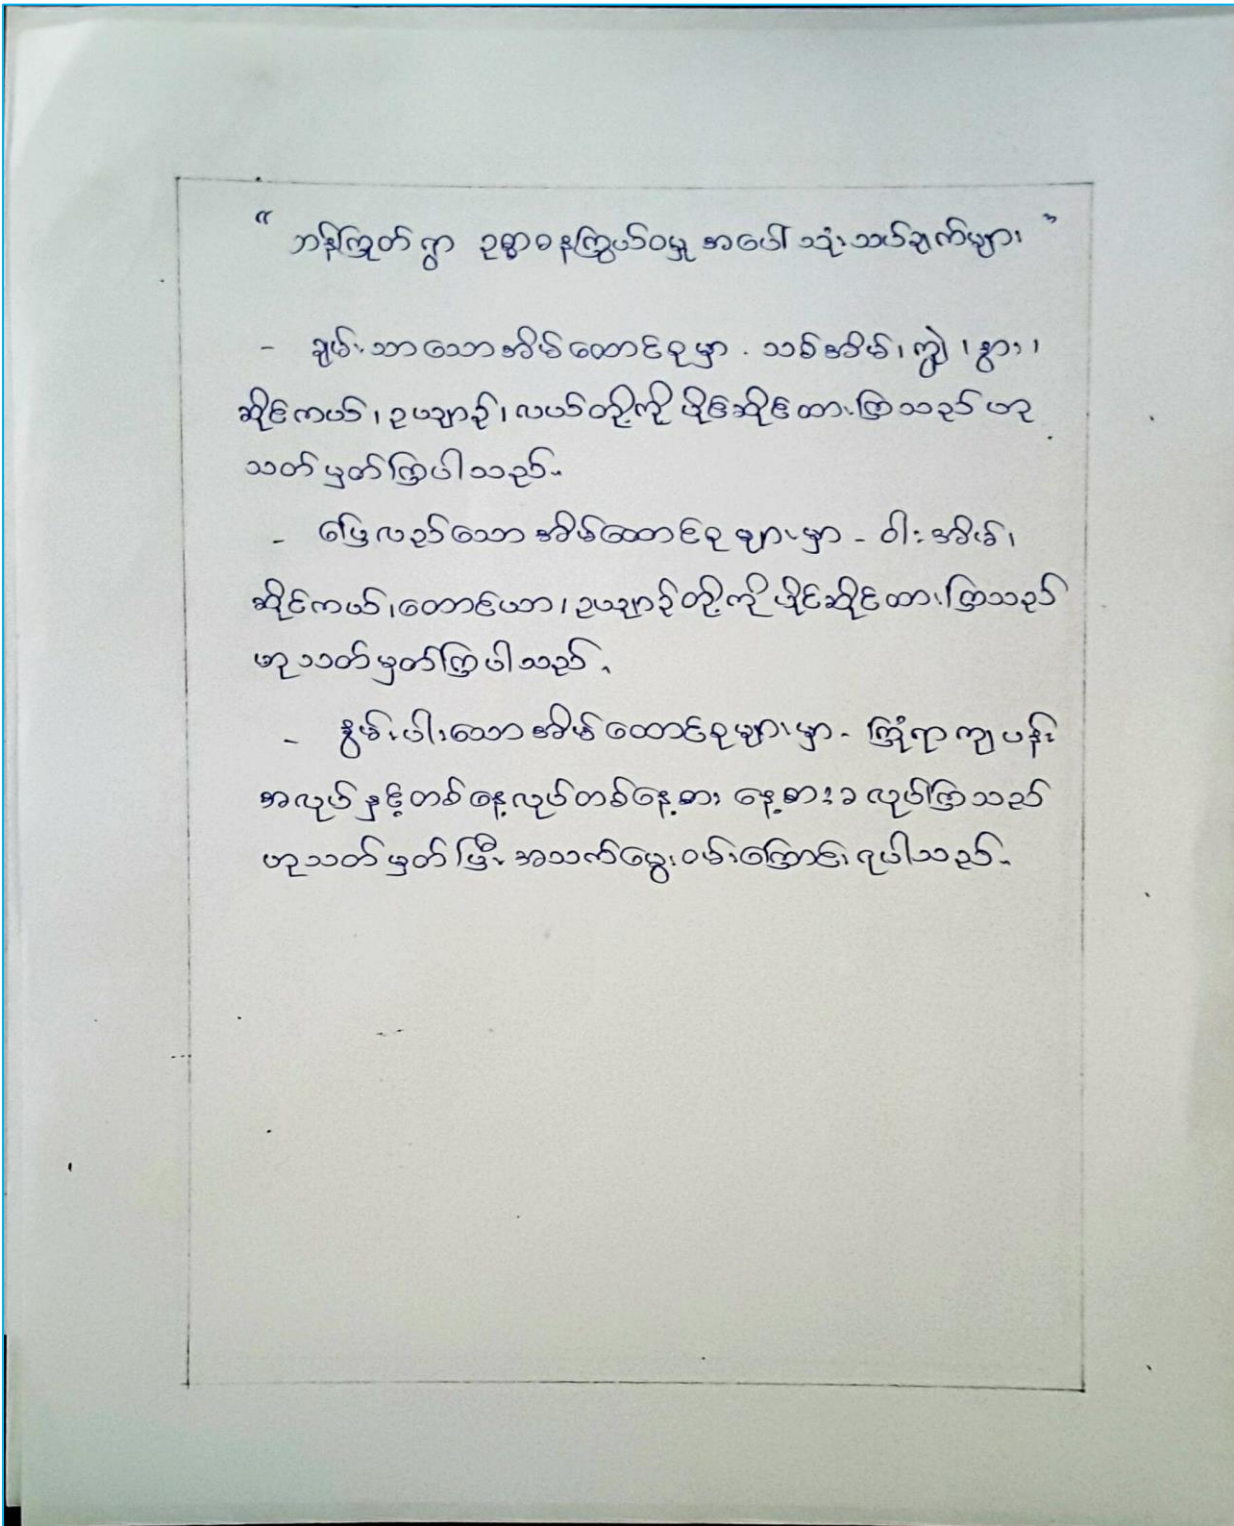 “ ဘန်ကြုတ်ရွာ ဥစ္စာဓနကြွယ်ဝမှု အပေါ် သုံးသပ်ချက်များ ”
- ချမ်းသာသောအိမ်ထောင်စုမှာ - သစ်အိမ်၊ ကျွဲ ၊ နွား ၊
ဆိုင်ကယ်၊ ဥယျာဉ်၊ လယ်တို့ကို ပိုင်ဆိုင်ထားကြသည် ဟု
သတ်မှတ်ကြပါသည်။
- ပြေလည်သော အိမ်ထောင်စု များမှာ - ဝါးအိမ်၊
ဆိုင်ကယ်၊ တောင်ယာ၊ ဥယျာဉ်တို့ကို ပိုင်ဆိုင်ထားကြသည်
ဟုသတ်မှတ်ကြပါသည်။
- နွမ်းပါးသောအိမ်ထောင်စုများမှာ - ကြုံရာကျပန်း
အလုပ်နှင့်တစ်နေ့လုပ်တစ်နေ့စား နေ့စားခ လုပ်ကြသည်
ဟုသတ်မှတ်ပြီး အသက်မွေးဝမ်းကြောင်းရပါသည်။